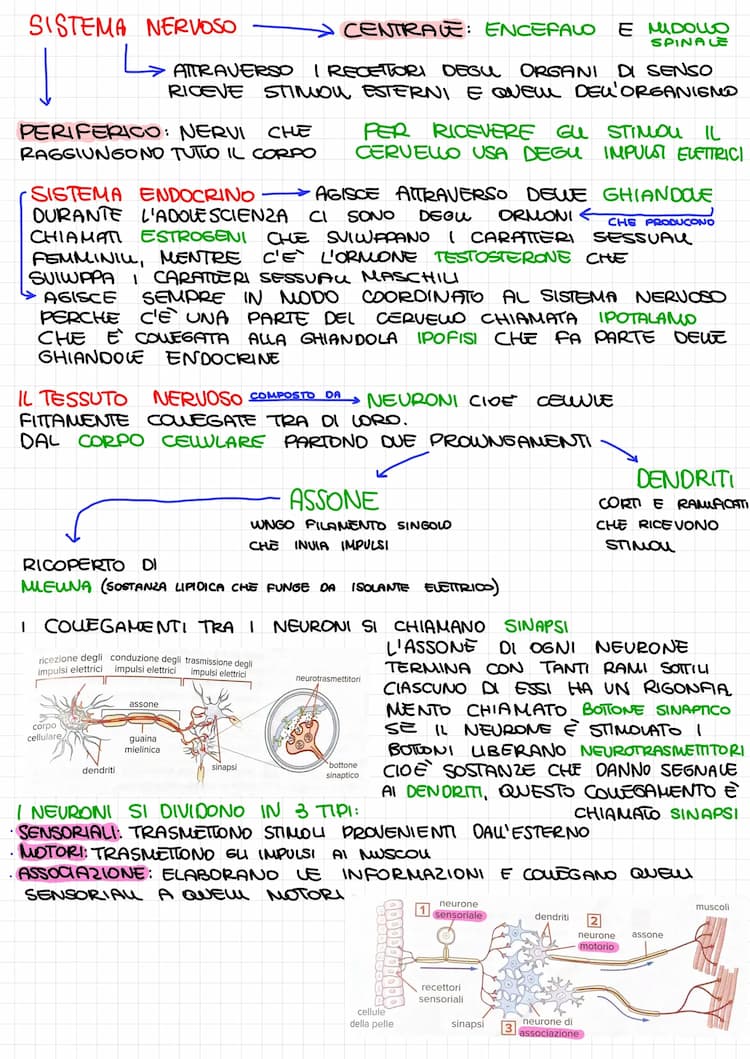 SISTEMA NERVOSO → CENTRALE: ENCEFALO E MIDOLLO SPINALE
ATTRAVERSO I RECETTORI DEGLI ORGANI DI SENSO
RICEVE STIMOLI ESTERNI E QUELLI DELL'ORGANISMO
PERIFERICO: NERVI CHE
RAGGIUNGONO TUTTO IL CORPO
PER RICEVERE GLI STIMOLI IL
CERVELLO USA DEGLI IMPULSI ELETTRICI
SISTEMA ENDOCRINO → AGISCE ATTRAVERSO DELLE GHIANDOLE
CHE PRODUCONO
DURANTE L'ADOLESCIENZA CI SONO DEGLI ORMONI
CHIAMATI ESTROGENI CHE SVILUPPANO I CARATTERI SESSUALI
FEMMINILI, MENTRE C'È L'ORMONE TESTOSTERONE CHE
SVILUPPA I CARATTERI SESSUALI MASCHILI
AGISCE SEMPRE IN MODO COORDINATO AL SISTEMA NERVOSO
PERCHE C'È UNA PARTE DEL CERVELLO CHIAMATA IPOTALAMO
CHE È COLLEGATA ALLA GHIANDOLA IPOFISI CHE FA PARTE DELLE
GHIANDOLE ENDOCRINE
IL TESSUTO NERVOSO COMPOSTO DA → NEURONI CIOÈ CELLULE
FITTAMENTE COLLEGATE TRA DI LORO.
DAL CORPO CELLULARE PARTONO DUE PROLUNGAMENTI
ASSONE
LUNGO FILAMENTO SINGOLO
CHE INVIA IMPULSI
DENDRITI
CORTI E RAMIFICATI
CHE RICEVONO
STIMOLI
RICOPERTO DI
MIELINA (SOSTANZA LIPIDICA CHE FUNGE DA ISOLANTE ELETTRICO)
I COLLEGAMENTI TRA I NEURONI SI CHIAMANO SINAPSI
ricezione degli
impulsi elettrici
conduzione degli
impulsi elettrici
trasmissione degli
impulsi elettrici
neurotrasmettitori
assone
corpo
cellulare
guaina
mielinica
dendriti
sinapsi
bottone
sinaptico
L'ASSONE DI OGNI NEURONE
TERMINA CON TANTI RAMI SOTTILI
CIASCUNO DI ESSI HA UN RIGONFIA
MENTO CHIAMATO BOTTONE SINAPTICO
SE IL NEURONE È STIMOLATO I
BOTTONI LIBERANO NEUROTRASMETTITORI
CIOÈ SOSTANZE CHE DANNO SEGNALE
AI DENDRITI, QUESTO COLLEGAMENTO È
CHIAMATO SINAPSI
I NEURONI SI DIVIDONO IN 3 TIPI:
· SENSORIALI: TRASMETTONO STIMOLI PROVENIENTI DALL'ESTERNO
· MOTORI: TRASMETTONO GLI IMPULSI AI MUSCOLI
· ASSOCIAZIONE: ELABORANO LE INFORMAZIONI E COLLEGANO QUELLI
SENSORIALI A QUELLI MOTORI
1 neurone
sensoriale
dendriti
2
neurone
motorio
assone
muscoli
recettori
sensoriali
cellule
della pelle
sinapsi
3 neurone di
associazione